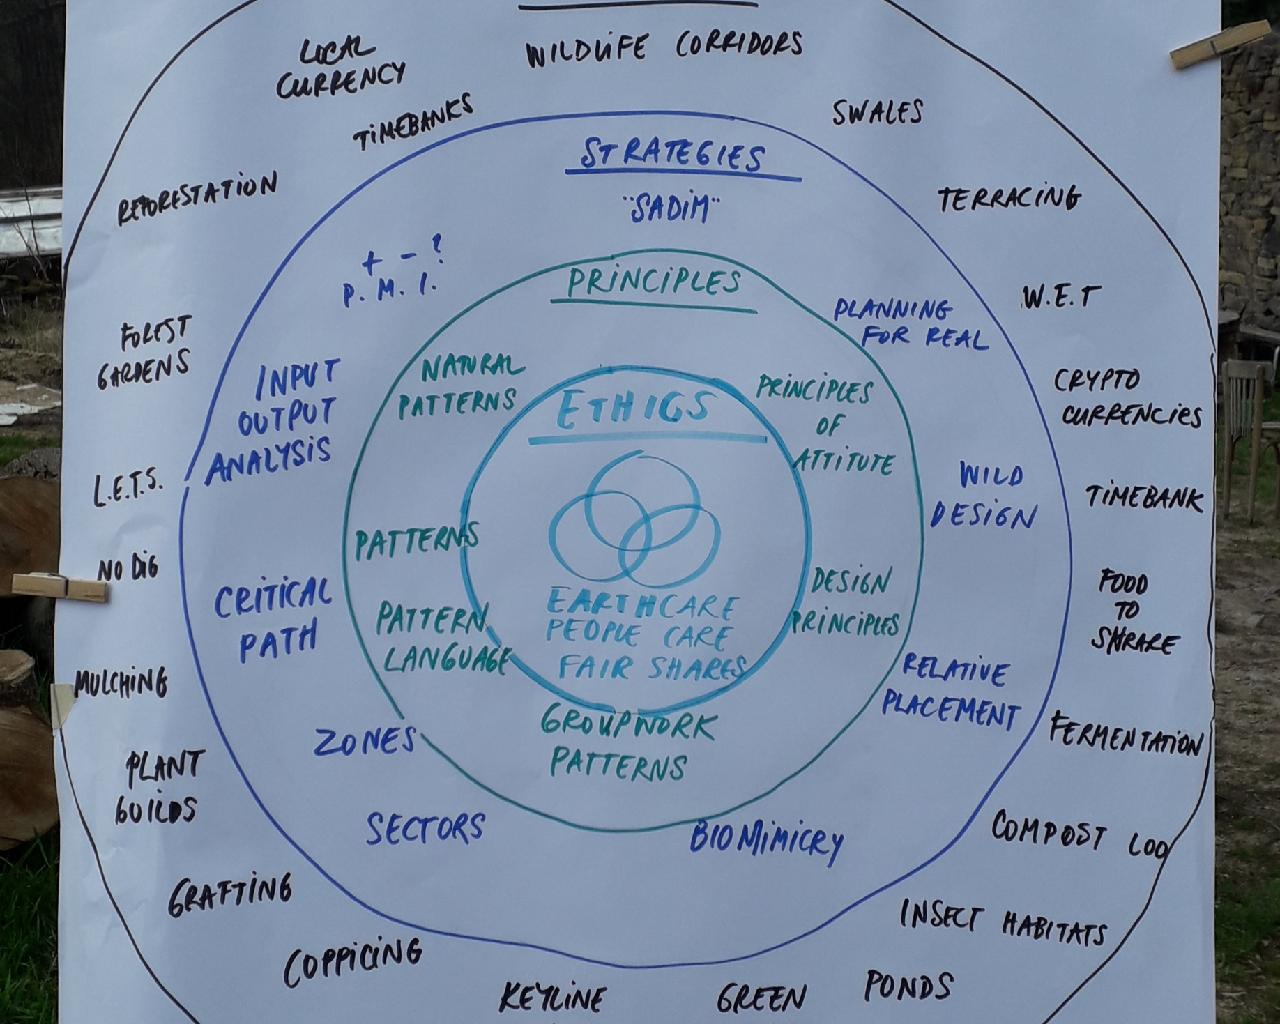 WILDLIFE CORRIDORS
LOCAL
CURRENCY
TIMEBANKS
SWALES
REFORESTATION
TERRACING
STRATEGIES
"SADIM"
+ - ?
P. M. I.
PRINCIPLES
PLANNING
FOR REAL
W.E.T
FOREST
GARDENS
INPUT
OUTPUT
ANALYSIS
NATURAL
PATTERNS
ETHICS
PRINCIPLES
OF
ATTITUTE
CRYPTO
CURRENCIES
L.E.T.S.
WILD
DESIGN
TIMEBANK
NO DIG
PATTERNS
CRITICAL
PATH
PATTERN
LANGUAGE
EARTHCARE
PEOPLE CARE
FAIR SHARES
DESIGN
PRINCIPLES
FOOD
TO
SHRARE
MULCHING
RELATIVE
PLACEMENT
ZONES
GROUPWORK
PATTERNS
FERMENTATION
PLANT
GUILDS
SECTORS
BIOMIMICRY
COMPOST LOO
GRAFTING
INSECT HABITATS
COPPICING
KEYLINE
GREEN
PONDS